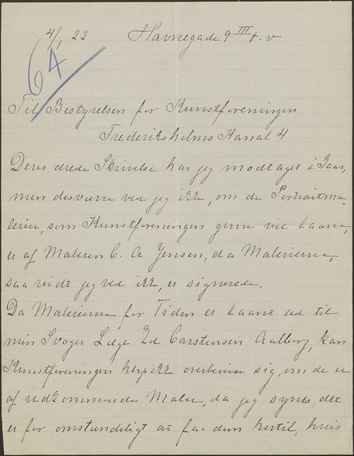 4/1 23 Havnegade 9 III t. v
64
Til Bestyrelsen for Kunstforeningen
Frederiksholms Kanal 4
Deres ærede Skrivelse har jeg modtaget i Gaar,
men desværre ved jeg ikke, om de Portraitma-
lerier, som Kunstforeningen gerne vil laane,
er af Maleren C. A Jensen, da Malerierne,
saa vidt jeg ved ikke, er signerede.
Da Malerierne for Tiden er laant ud til
min Svoger Læge Carstensen Aalborg, kan
Kunstforeningen overbevise sig, om de er
af vedkommende Maler, da jeg synes det
er for omstændeligt at faa dem hertil, hvis